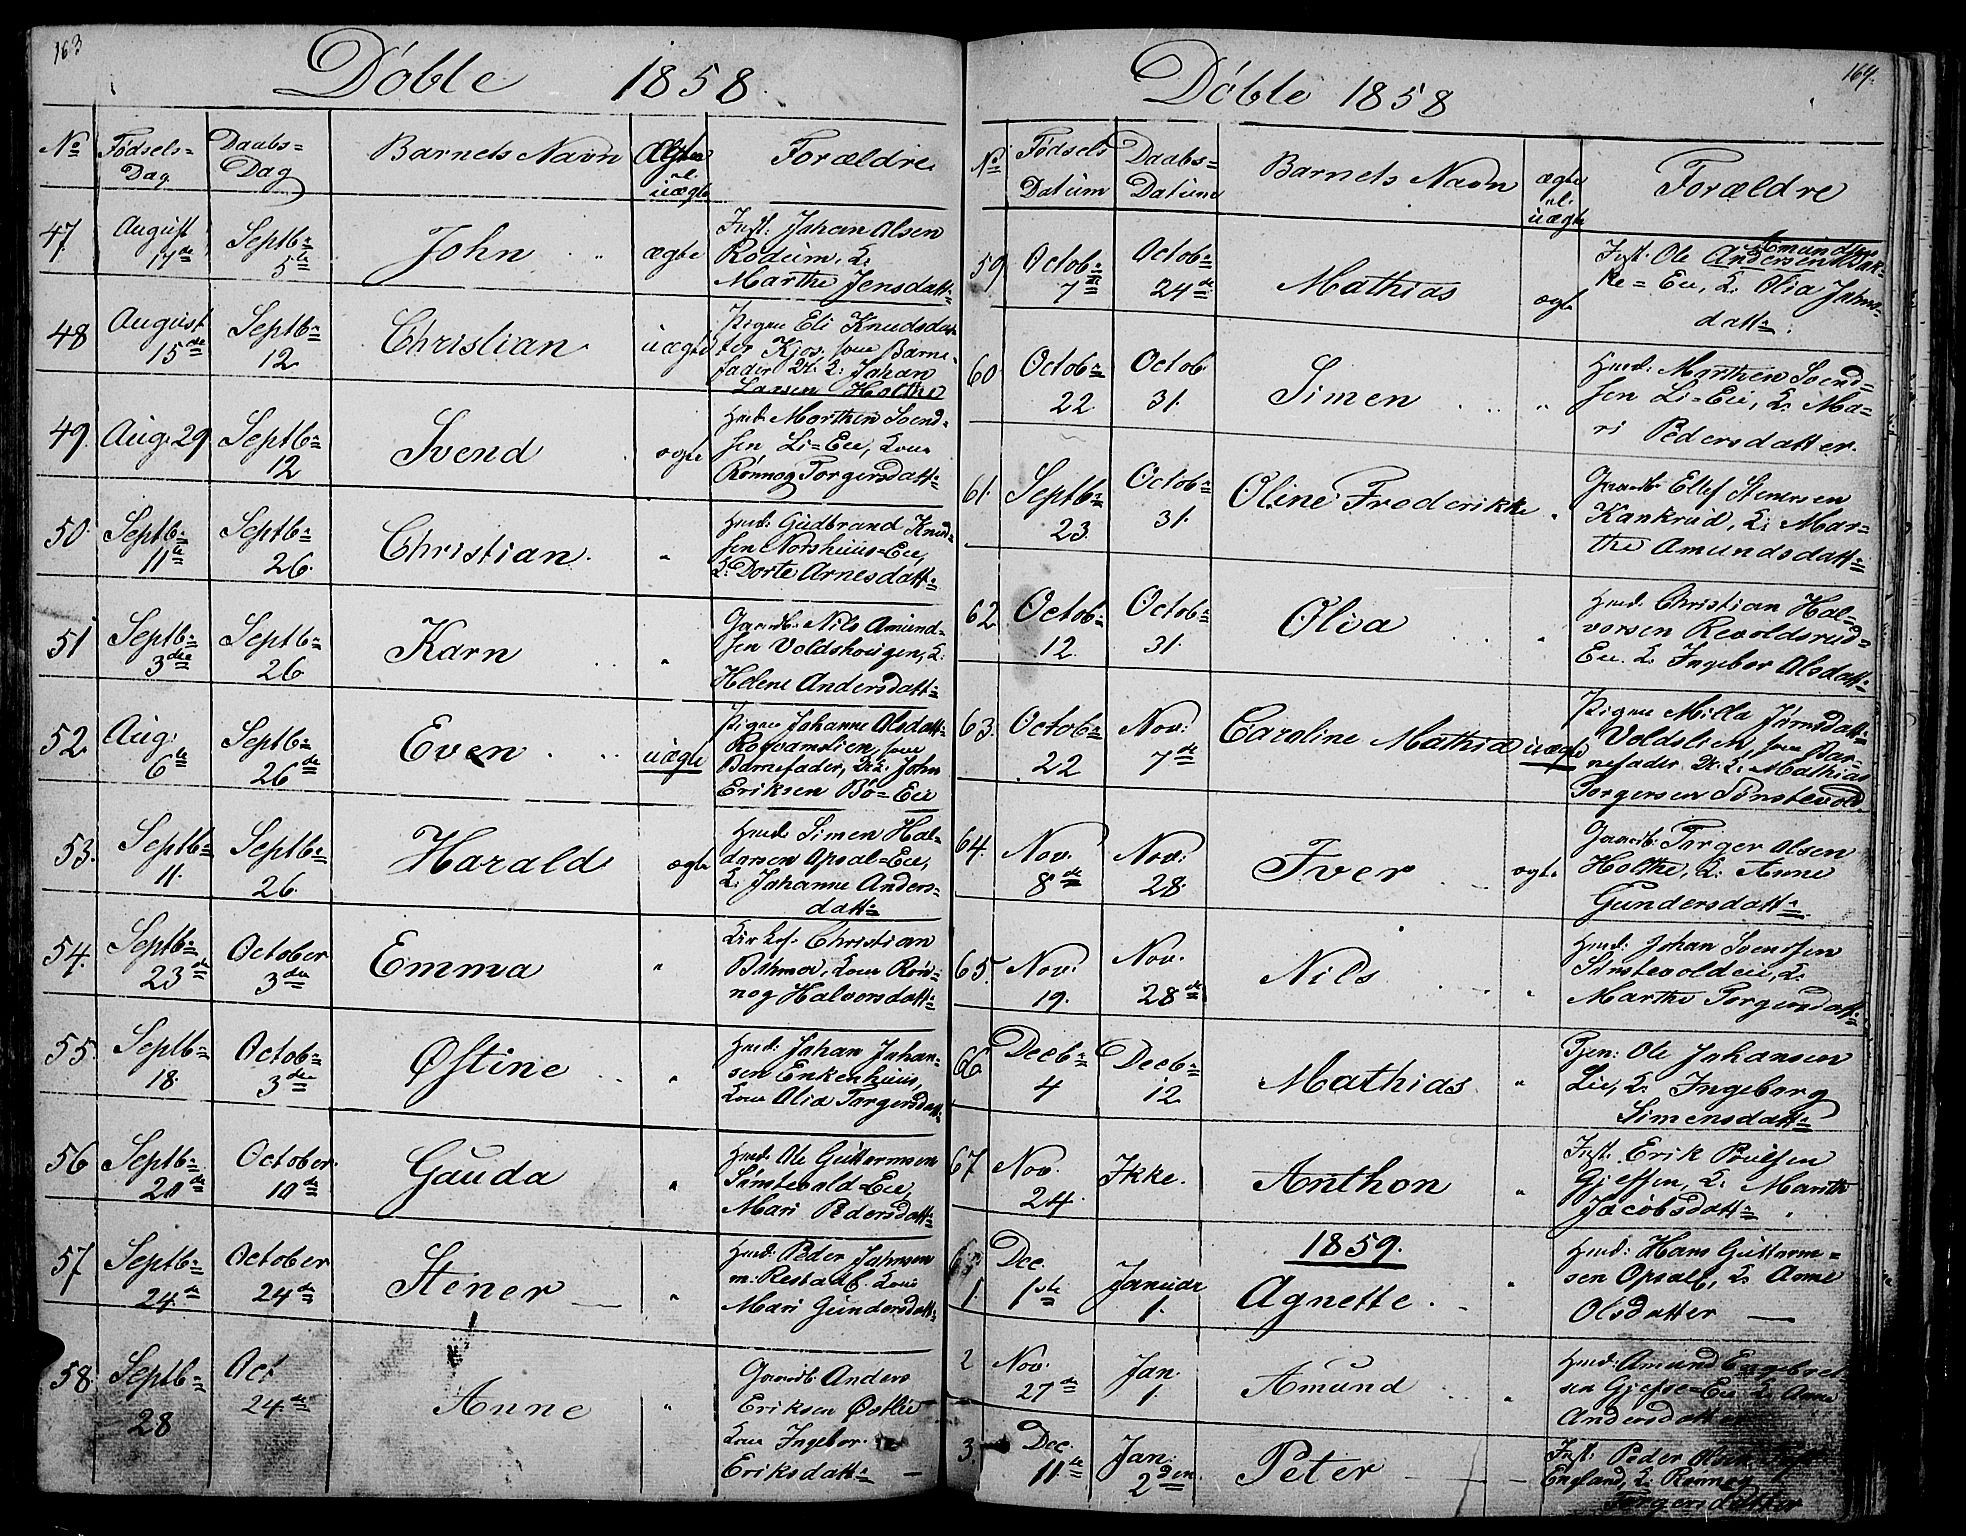 163
Døbte 1858.
No Fødsels= Dag Daabs= Dag Barnets Navn Ægte el. uægte Forældre
47. August 17de Septb: 5te John ægte Inst: Johan Olsen
Rodeim, K:
Marthe Jensdatt:
48 August 15de Septb: 12 Christian uægte Pigen Eli Knudsdat-
ter Kjos, som Barne-
fader U: K: Johan
Larsen Holthe
49. Aug. 29 Septb: 12 Svend ægte Huusm: Morthen Svend=
sen Li=Eie, Kone
Rønnog Torgersdatt:
50. Septb: 11te Septb: 26. Christian. " Huusm: Gudbrand Knud=
sen Norshuus=Eie,
K: Dorte Arnesdatt:
51 Septb: 3die Septb: 26 Karn " Gaardb: Nils Amund=
sen Voldshougen, K:
Helene Andersdatt:
52 Aug. 6te Septb: 26de Even uægte Pigen Johanne Olsdatt:
som
Barnefader, U: K: John
Eriksen Bø=Eie
53. Septb: 11. Septb: 26 Harald ægte Huusm: Simen Hal=
dorsen Opsal=Eie,
K: Johanne Anders-
datt:
54. Septb: 23de October 3die Emma " Christian
Bøhmer, Kone Røn=
nog Halvorsdatt:
55. Septb: 18. Octob: 3die Østine " Huusm: Johan Johan-
sen Enkenhuus,
Kone Olia Torgersdatt:
56 Septb: 20de October 10de Gauda " Huusm: Ole Guttormsen
Sønstevold Eie,
Mari Pedersdatt:
57 Septb: 24de October 24de Stener " Huusm: Peder Jahnsen
Kone
Mari Gundersdatt:
58. Septb: 28 Oct 24de Anne " Gaardb: Anders
Eriksen Østlie
Kone Ingebor
Eriksdatt:
164.
Døbte 1858
No. Fødsels Datum Daabs= Datum Barnets Navn ægte el. uægte Forældre
59 Octob: 7de Octob: 24de Mathias ægte Inst: Ole Andersen Amundsen Bak=
ke=Eie, K: Olia Jahns=
datt:
60 Octob: 22 Octob 31. Simen " Huusm: Morthen Svend=
sen Li=Eie, K: Ma=
ri Pedersdatter.
61. Septb: 23. Octob: 31. Oline Frederikke " Gaardb: Ellef Stenersen
Kankrud, K: Mar=
the Amundsdatt:
62 Octob: 12. Octob: 31. Olia " Huusm: Christian Hal=
vorsen Revoldsrud=
Eie. K: Ingebor Olsdatt:
63. Octob: 22 Nov: 7de Caroline Mathia uægte Pigen Milla Jørnsdatt:
Voldslien, som Bar=
nefader U: K: Mathias
Torgersen Sønstevold
64. Nov. 8de Nov: 28. Iver ægte Gaardb: Torger Olsen
Holthe, K: Anne
Gundersdatt:
65. Nov: 19. Nov. 28de Nils " Huusm: Johan Svendsen
Sønstevoldeie, K:
Marthe Torgersdatt:
66 Decb: 4 Decb: 12 Mathias " Tjen: Ole Johansen
Lie, K: Ingeborg
Simensdatt:
67. Nov. 24. Ikke. Anthon " Inst: Erik Poulsen
Gjefsen, K: Marthe
Jacobsdatt:
1859.
1 Dec. 1ste Januar 1. Agnette. " Huusm: Hans Guttorm=
sen Opsalt, K: Anne
Olsdatter
2 Nov. 27de Jan. 1 Amund " Huusm: Amund Engebret
sen Gjefse=Eie K: Anne
Andersdatter
3. Dec. 11te Jan: 2den. Peter Inst: Peder Olsen
England, K: Rønnog
Torgersdatter